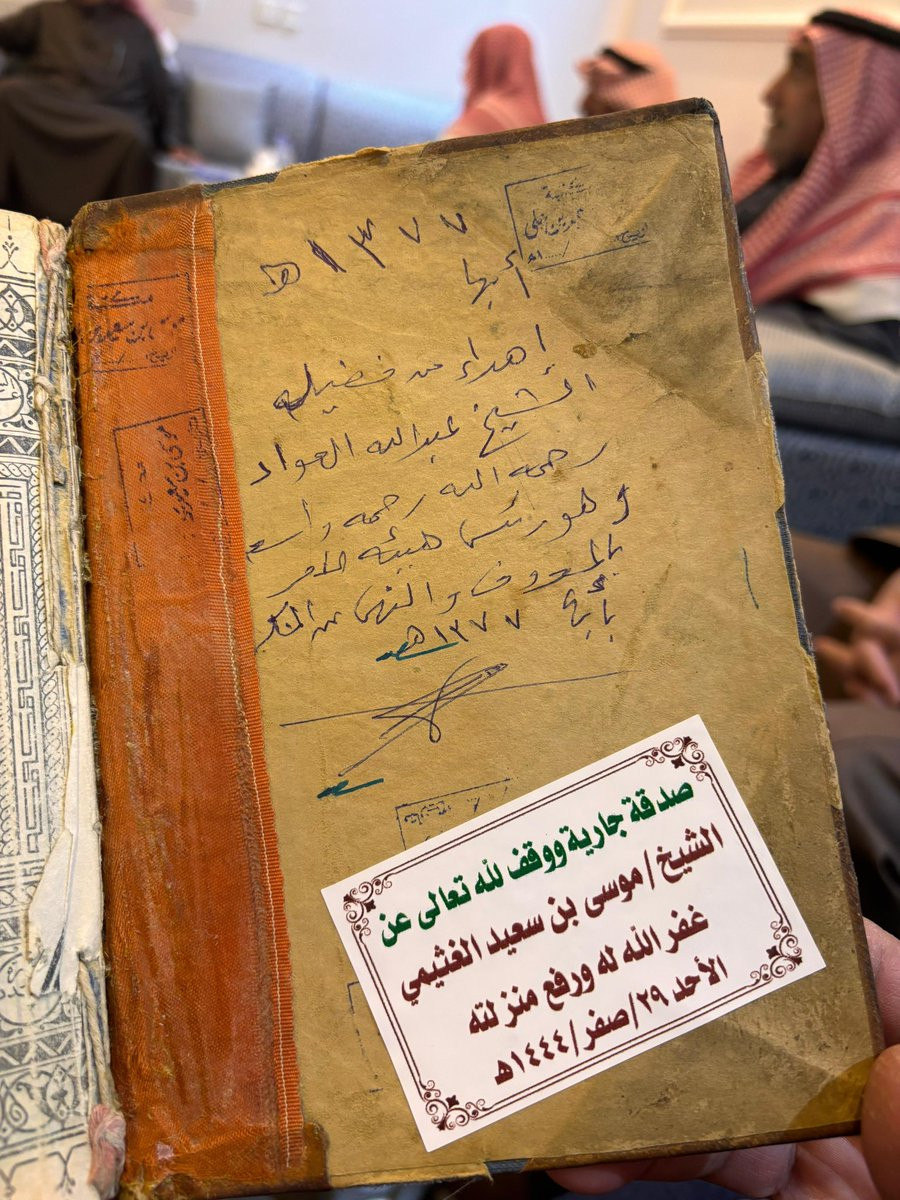 ١٣٧٧ هـ
أبها
إهداء من فضيلة
الشيخ عبدالله العواد
رحمه الله رحمه واسعه
وهو رئيس هيئة الأمر
بالمعروف والنهي عن المنكر
بأبها ١٣٧٧هـ
موسى بن سعيد
صدقة جارية ووقف لله تعالى عن
الشيخ/موسى بن سعيد الغثيمي
غفر الله له ورفع منزلته
الأحد ٢٩/صفر/١٤٤٤هـ